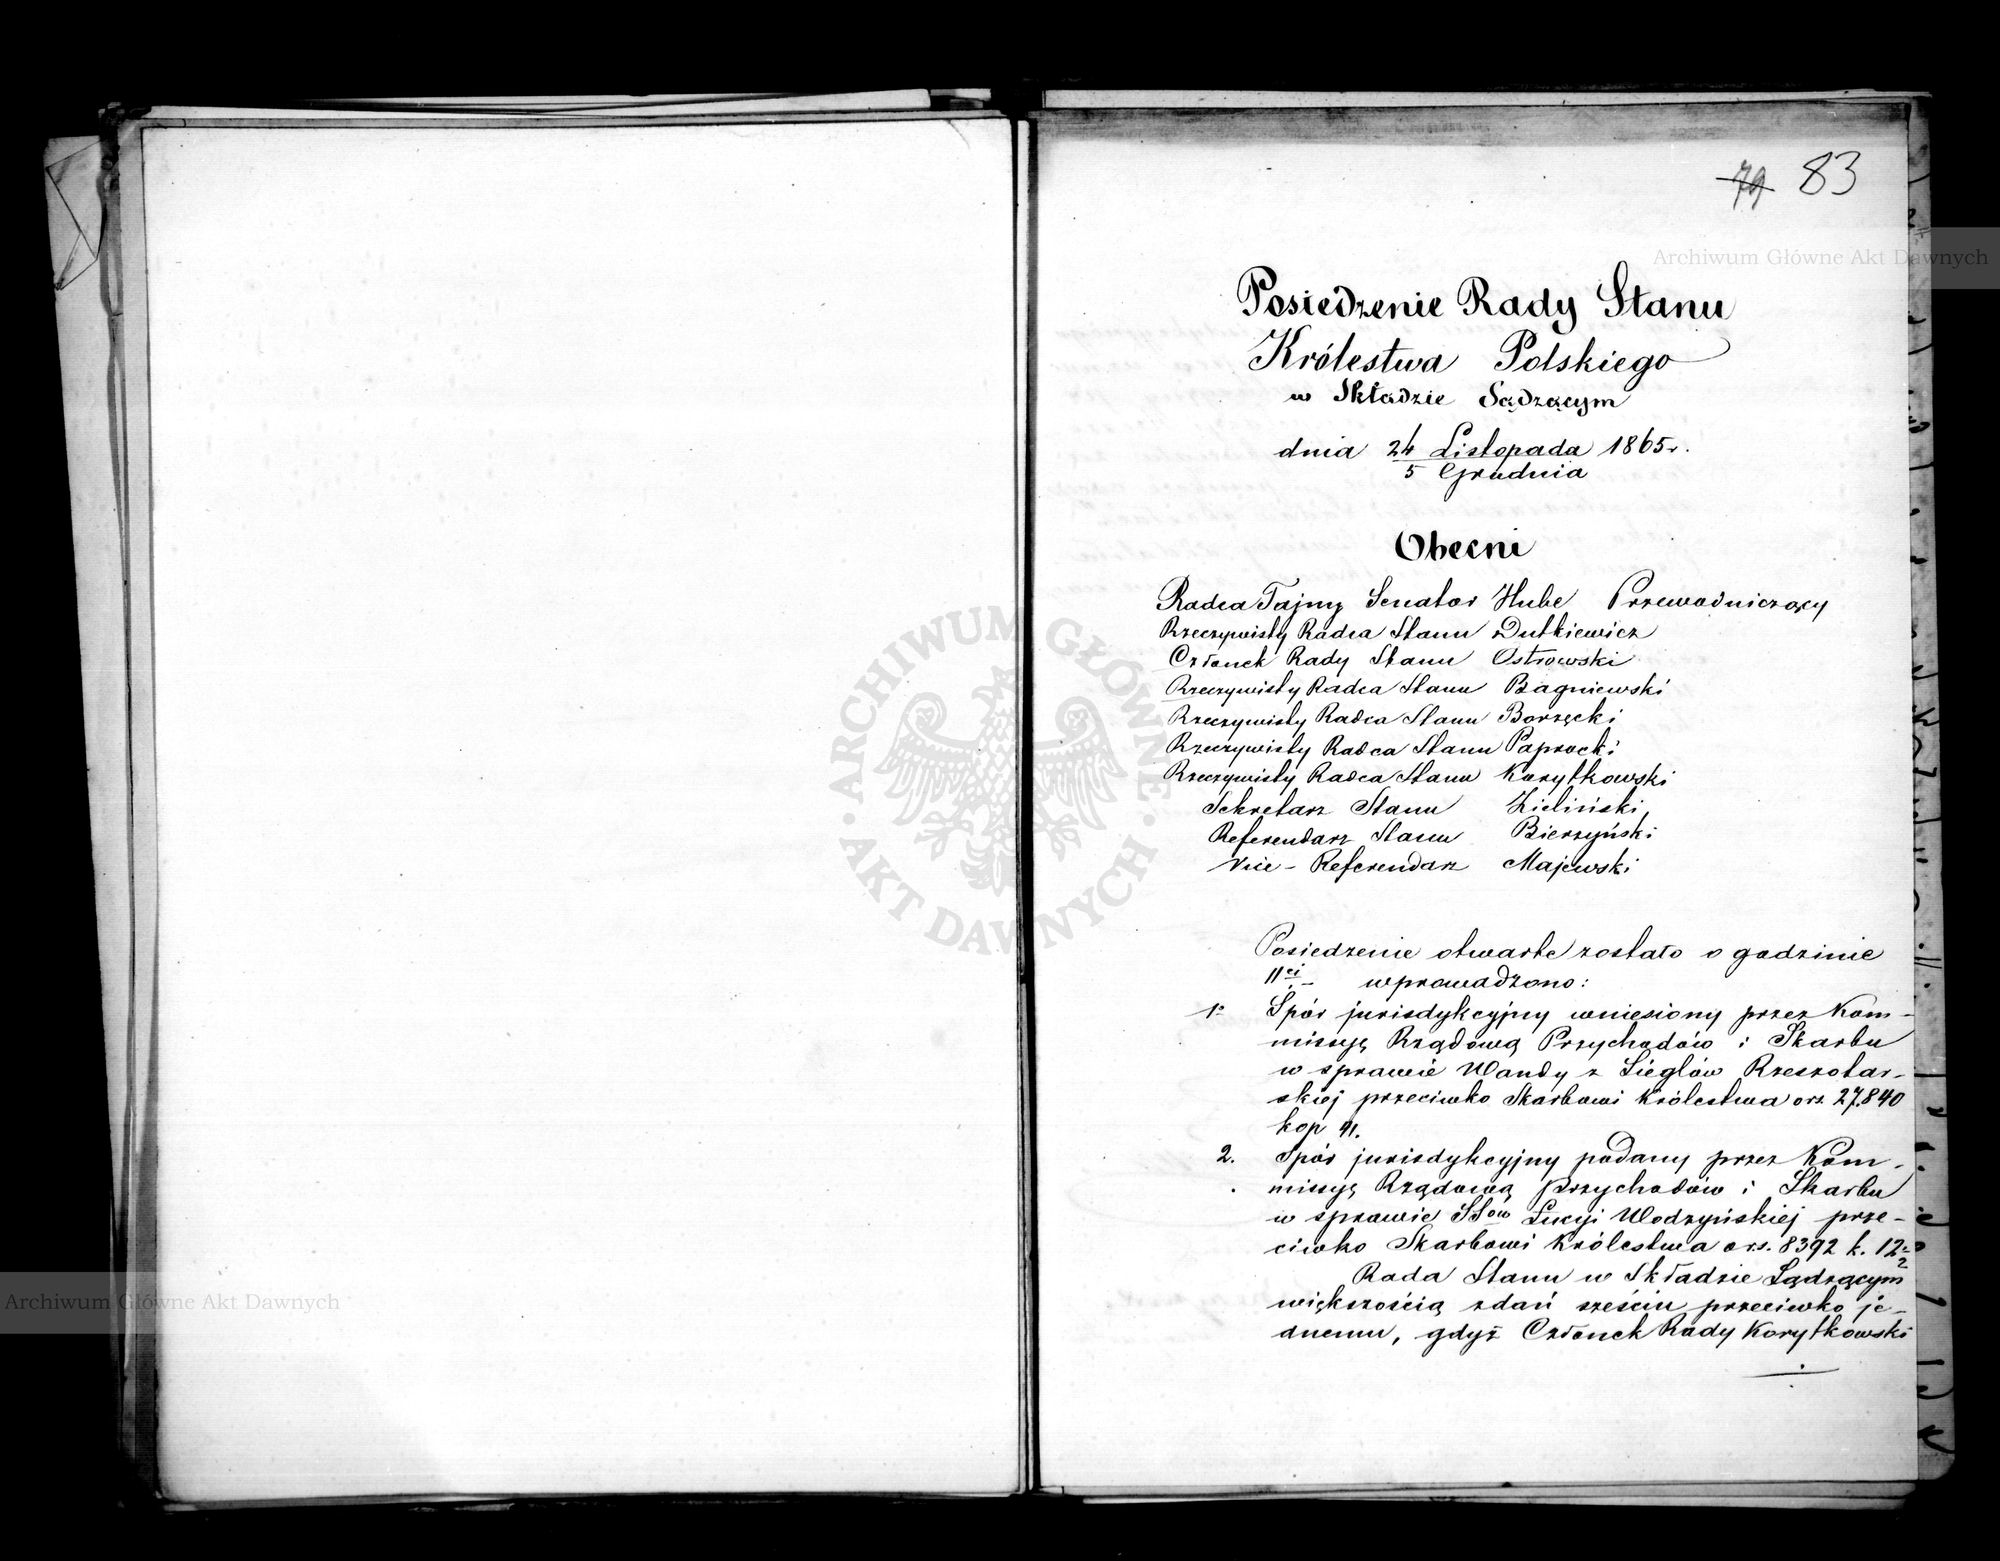 79 83
Archiwum Główne Akt Dawnych
Posiedzenie Rady Stanu
Królestwa Polskiego
w Składzie Sądzącym
dnia 24 Listopada 1865 r.
5 Grudnia
Obecni
Radca Tajny Senator Hube Przewodniczący
Rzeczywisty Radca Stanu Dutkiewicz
Członek Rady Stanu Ostrowski
Rzeczywisty Radca Stanu Bagniewski
Rzeczywisty Radca Stanu Borzęcki
Rzeczywisty Radca Stanu Paprocki
Rzeczywisty Radca Stanu Korytkowski
Sekretarz Stanu Zieliński
Referendarz Stanu Bierzyński
Vice-Referendarz Majewski
ARCHIWUM GŁÓWNE
AKT DAWNYCH
Posiedzenie otwarte zostało o godzinie
11ej wprowadzono:
1° Spór jurisdykcyjny wniesiony przez Kom-
missyę Rządową Przychodów i Skarbu
w sprawie Wandy z Zieglów Rzeszotar-
skiej przeciwko Skarbowi Królestwa o rs. 27.840
kop 41.
2. Spór jurisdykcyjny podany przez Kom-
missyę Rządową Przychodów i Skarbu
w sprawie SSów Łucyi Wodzyńskiej prze-
ciwko Skarbowi Królestwa o rs. 8392 k. 12
Rada Stanu w Składzie Sądzącym
większością zdań sześciu przeciwko je-
dnemu, gdyż Członek Rady Korytkowski
Archiwum Główne Akt Dawnych